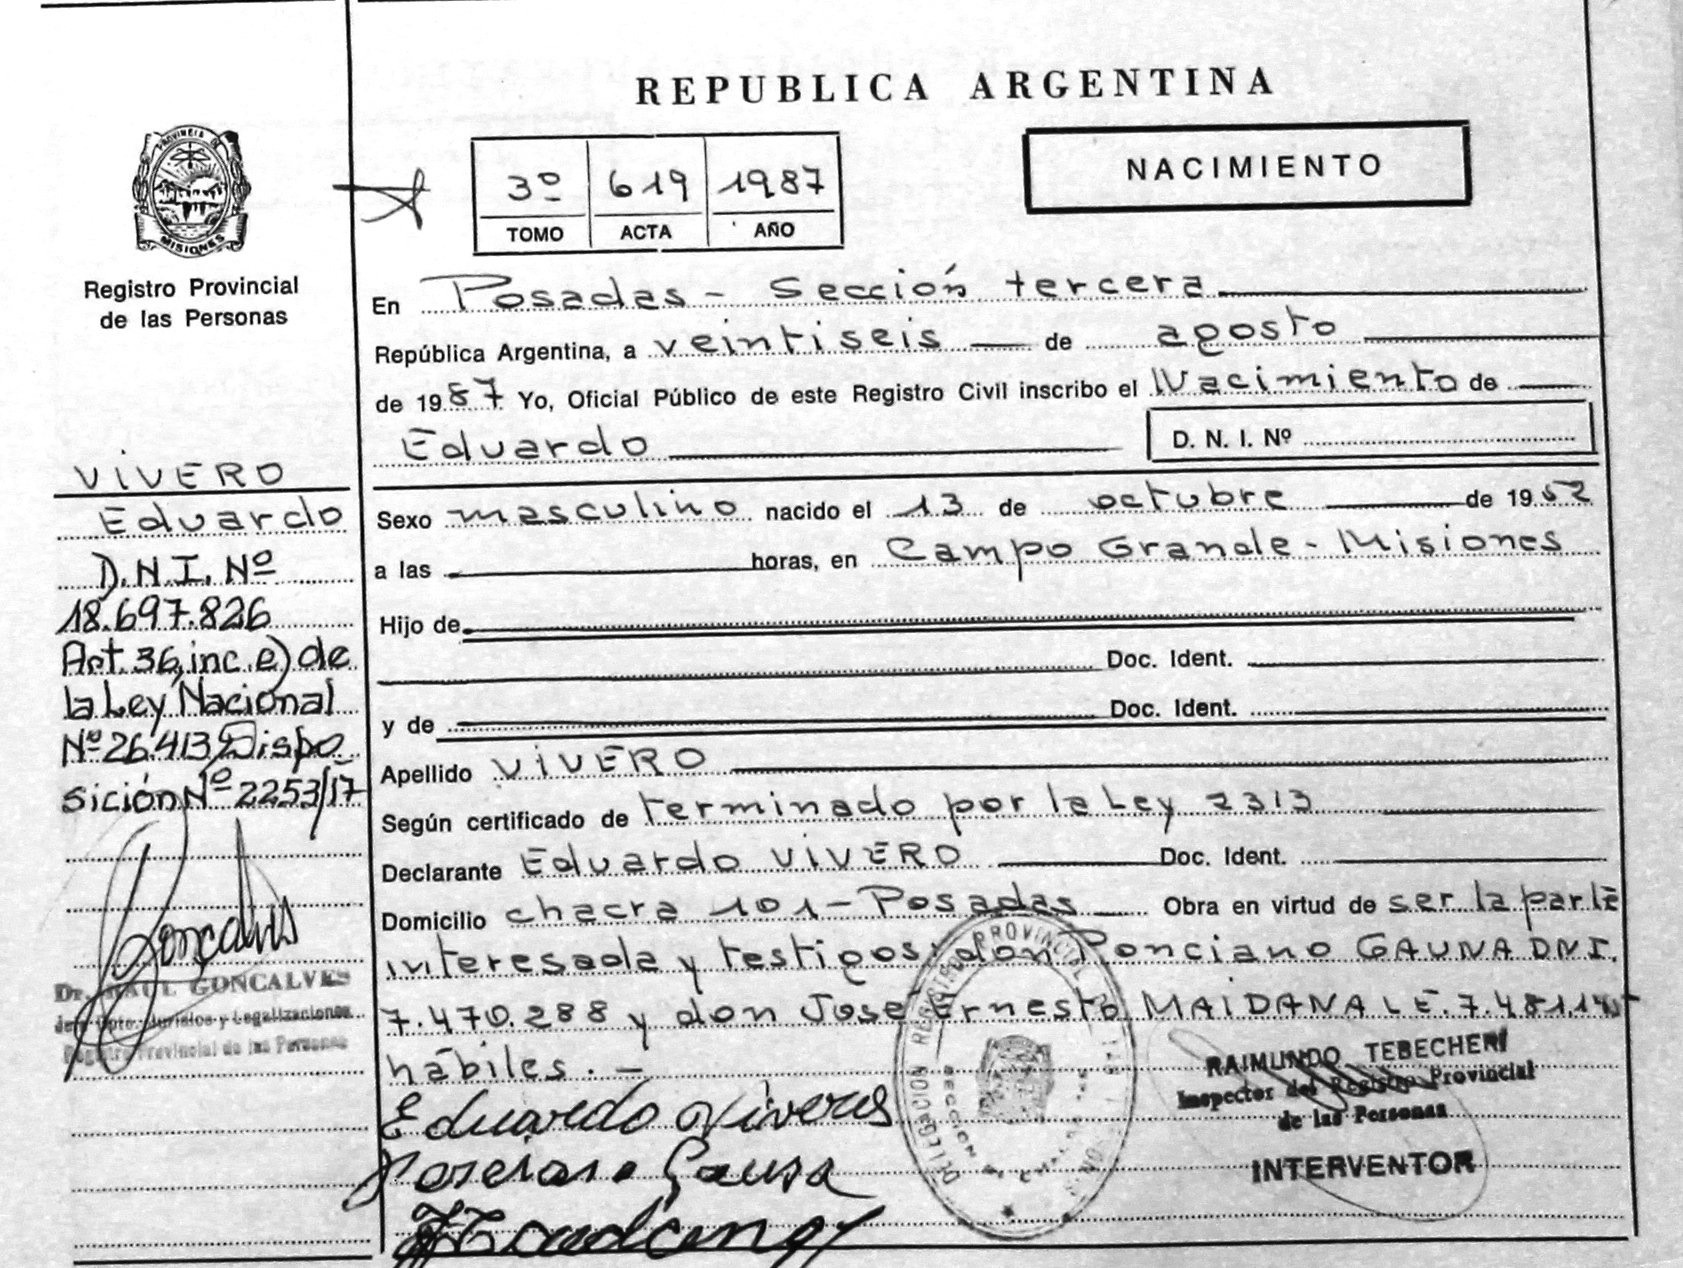 REPUBLICA ARGENTINA
PROVINCIA DE
MISIONES
Registro Provincial
de las Personas
3º 619 1987
TOMO ACTA AÑO
NACIMIENTO
En Posadas - Sección tercera
República Argentina, a veintiseis de agosto
de 1987 Yo, Oficial Público de este Registro Civil inscribo el Nacimiento de
Eduardo
D. N. I. Nº
Sexo masculino nacido el 13 de octubre de 1952
a las horas, en Campo Grande - Misiones
Hijo de
Doc. Ident.
y de Doc. Ident.
Apellido VIVERO
Según certificado de terminado por la Ley 2313
Declarante Eduardo VIVERO Doc. Ident.
Domicilio chacra 101 - Posadas Obra en virtud de ser la parte
interesada y testigos don Ponciano GAUNA DNI.
7.470.288 y don José Ernesto MAIDANA L E. 7.481.
hábiles. -
Eduardo Vivero
Gauna
RAIMUNDO TEBECHERI
Inspector del Registro Provincial
de las Personas
INTERVENTOR
VIVERO
Eduardo
D.N.I. Nº
18.697.826
Art. 36, inc. e) de
la Ley Nacional
Nº 26.413 Dispo
sición Nº 2253/17
Gonçalves
Dr. RAUL GONCALVES
Jefe Dpto. Jurídico y Legalizaciones
Registro Provincial de las Personas